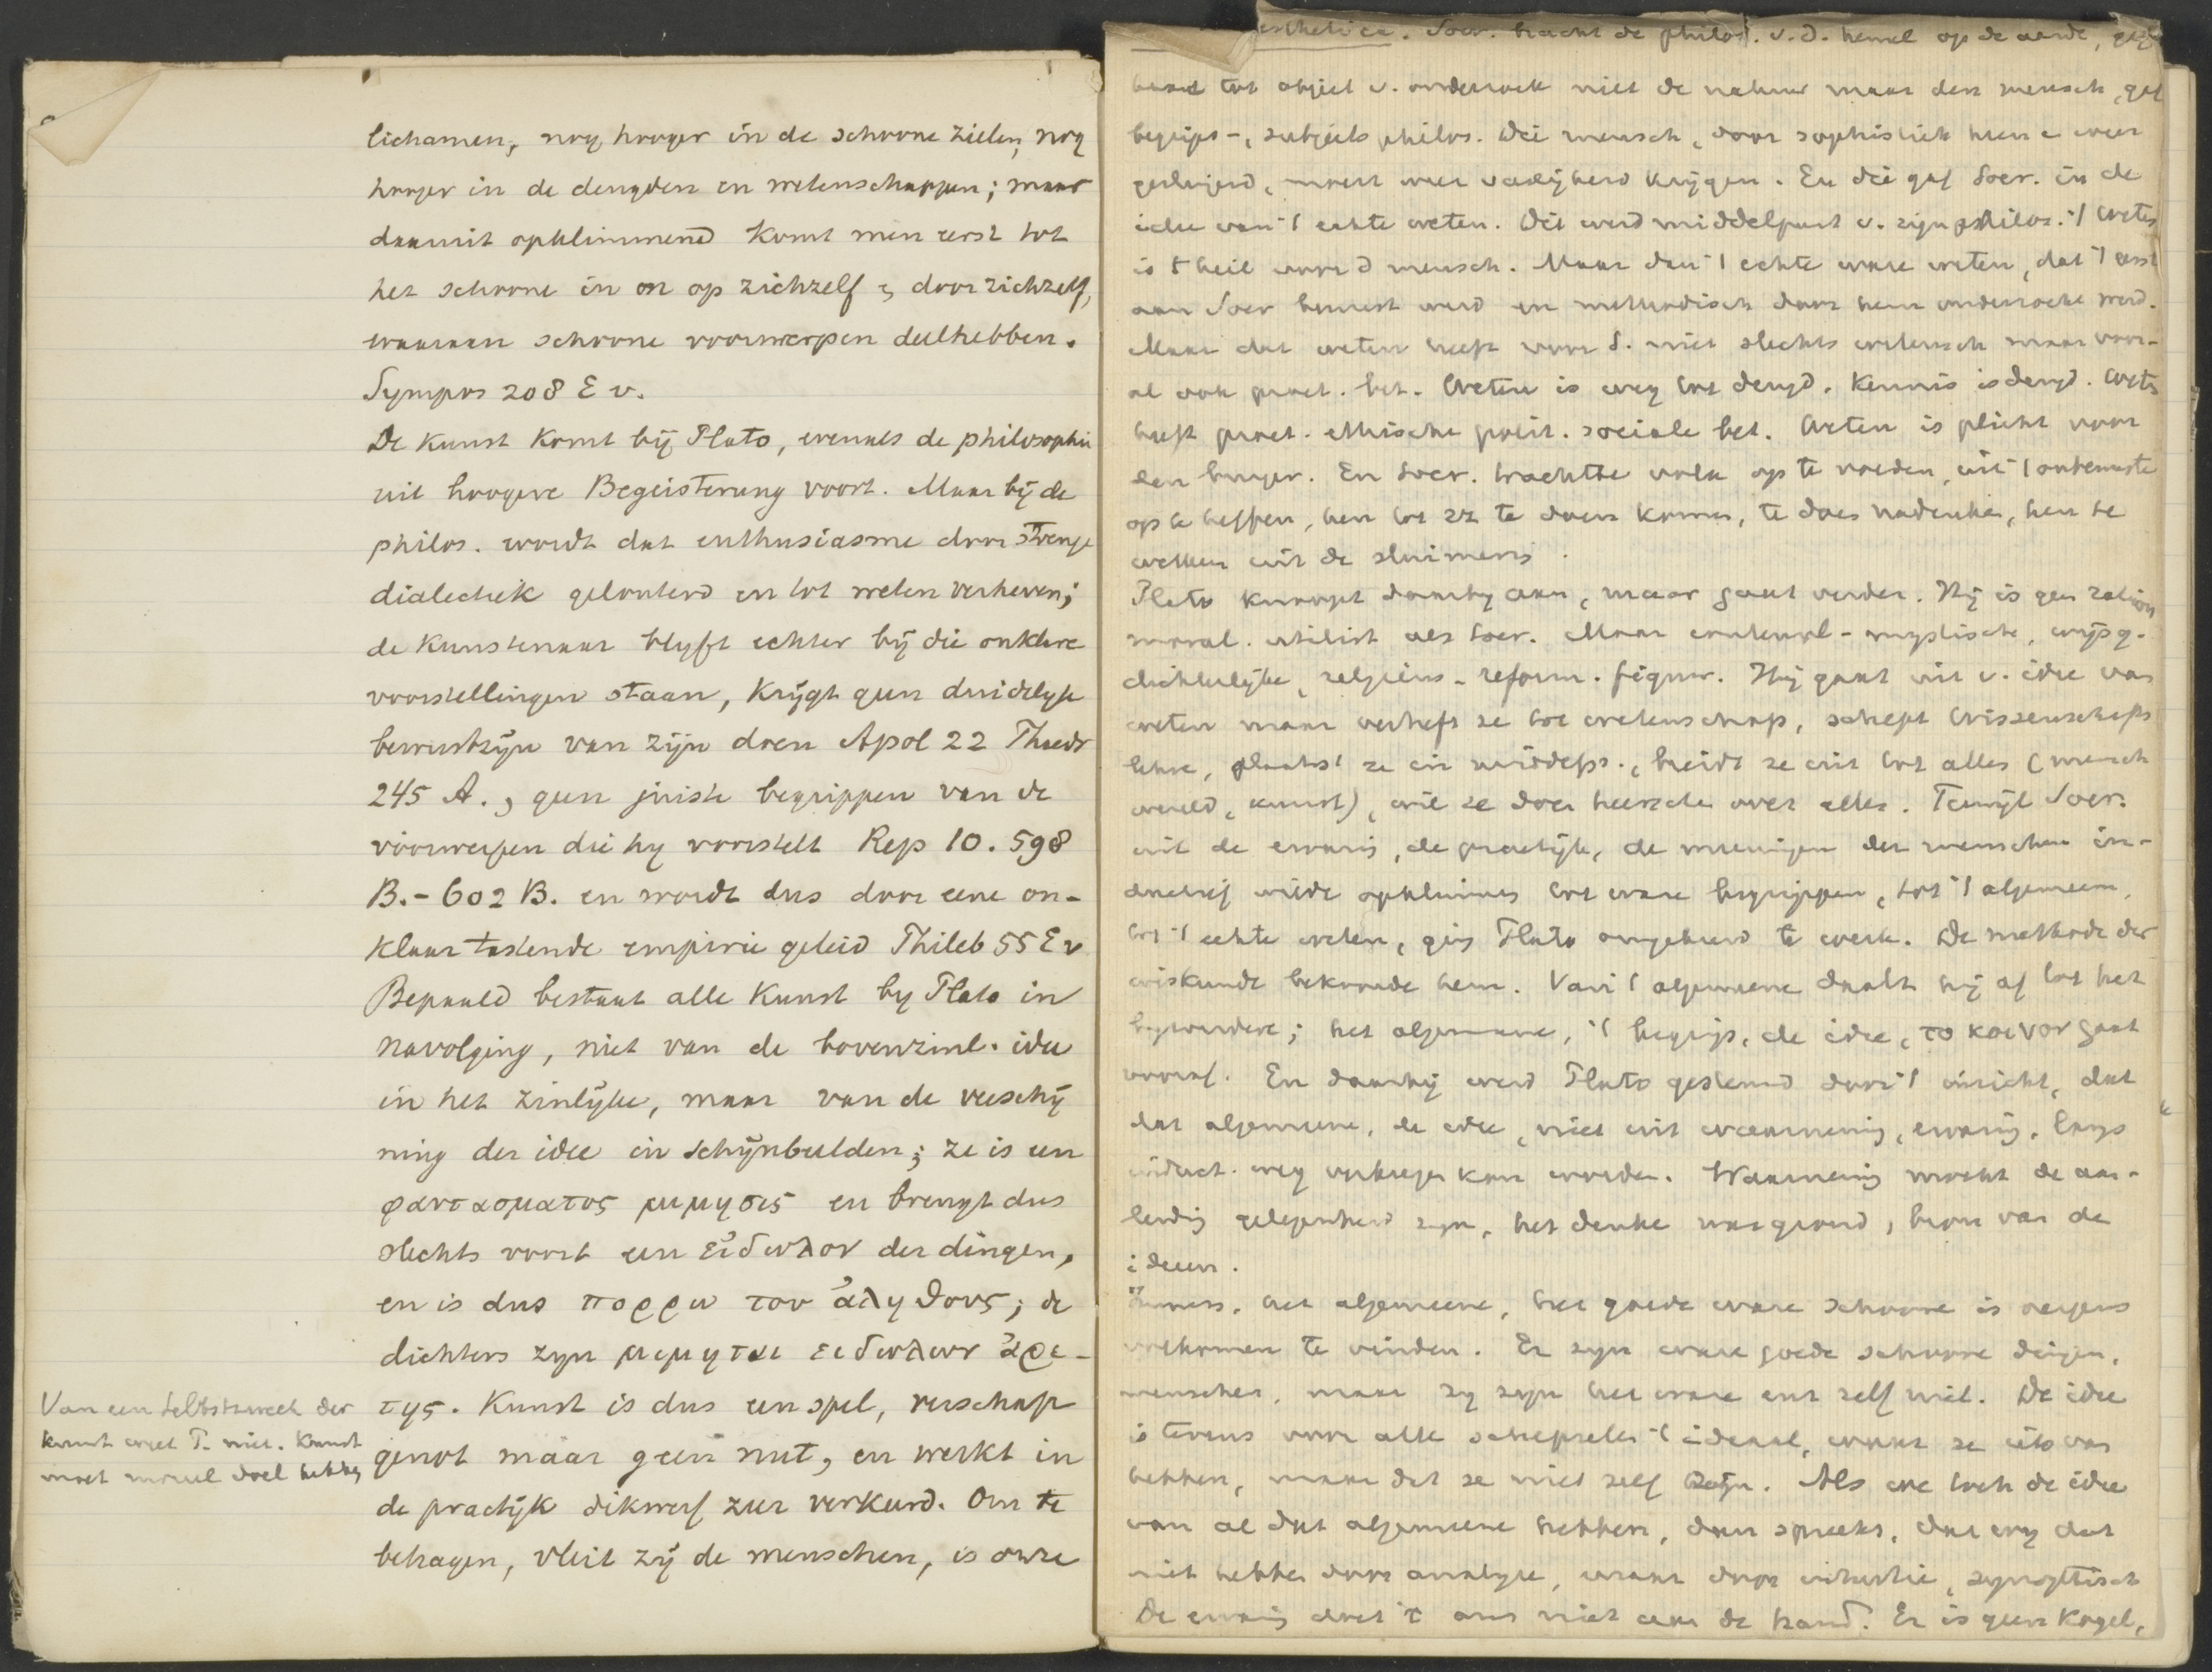 lichamen, nog hooger in de schoone zielen, nog
hooger in de deugden en wetenschappen; maar
daaruit opklimmend komt men eerst tot
het schoone in en op zichzelf & door zichzelf,
waaraan schoone voorwerpen deelhebben.
Sympos 208 E v.
De kunst komt bij Plato, evenals de philosophie
uit hoogere Begeisterung voort. Maar bij de
philos. wordt dat enthusiasme door strenge
dialectiek gelouterd en tot weten verheven;
de kunstenaar blyft echter bij die onklare
voorstellingen staan, krijgt geen duidelyk
bewustzijn van zijn doen Apol 22 Phaedr
245 A., geen juiste begrippen van de
voorwerpen die hy voorstelt Rep 10. 598
B. - 602 B. en wordt dus door eene on-
klaar tastende empirie geleid Phileb 55 E v
Bepaald bestaat alle kunst by Plato in
navolging, niet van de bovenzinl. idee
in het zinlijke, maar van de verschij
ning der idee in schijnbeelden; ze is een
φαντασματος μιμησις en brengt dus
slechts voort een εἰδωλον der dingen,
en is dus πορρω του ἀληθους; de
dichters zyn μιμηται ειδωλων ἀρε-
της. Kunst is dus een spel, verschaft
Van een Selbstzweck der
kunst weet P. niet. Kunst
moet moreel doel hebben
genot maar geen nut, en werkt in
de practijk dikwerf zeer verkeerd. Om te
behagen, vleit zij de menschen, is onze
esthetica. Socr. bracht de philos. v. d. hemel op de aarde,
tot object v. onderzoek niet de natuur maar den mensch, gaf
begrips-, subjects philos. Die mensch, door sophistiek heen & weer
geslingerd, moest weer vastigheid krijgen. En die gaf Socr. in de
idee van 't echte weten. Dit werd middelpunt v. zijn philos. 't Weten
is 't heil voor d mensch. Maar dan 't echte ware weten, dat 't eerst
aan Socr bewust werd en methodisch door hem onderzocht werd.
Maar dat weten heeft voor S. niet slechts wetensch maar voor-
al ook pract. bet. Weten is weg tot deugd. Kennis is deugd. Weten
heeft pract. ethische polit. sociale bet. Weten is plicht voor
den burger. En Socr. trachtte volk op te voeden, uit 't onbewuste
op te heffen, hen tot zz te doen komen, te doen nadenken, hen te
wekken uit de sluimering.
Plato knoopt daarby aan, maar gaat verder. Hij is geen
moral. utilist als Socr. Maar mystische,
dichterlijke, religieus-reform. figuur. Hij gaat uit v. idee van
weten maar verheft ze tot wetenschap, schept Wissenschafts
lehre, plaatst ze in middelp., breidt ze uit tot alles (mensch
wereld, kunst), wil ze doen heerschen over alles. Terwijl Socr.
uit de ervaring, de practijk, de meeningen der menschen in-
ductief wilde opklimmen tot ware begrippen, tot 't algemeen,
tot 't echte weten, ging Plato omgekeerd te werk. De methode der
wiskunde bekoorde hem. Van 't algemeene daalt hij af tot het
byzondere; het algemeene, 't begrip, de idee, το κοινον gaat
vooraf. En daarbij werd Plato gesteund door 't inzicht, dat
dat algemeene, de idee, niet uit waarneming, ervaring, langs
induct. weg verkregen kan worden. Waarneming moeht de aan-
leiding gelegenheid zyn, het denken was grond, bron van de
ideeen.
Immers, het algemeene, het goede ware schoone is nergens
volkomen te vinden. Er zyn ware goede schoone dingen,
menschen, maar zy zyn het ware enz zelf niet. De idee
is tevens voor alle schepselen 't ideaal, waar ze iets van
hebben, maar dat ze niet zelf zijn. Als we toch de idee
van al dat algemeene hebben, dan spreekt, dat wy dat
niet hebben door analyse, maar door intuitie, synoptisch
De ervaring doet 't ons niet aan de hand. Er is geen kogel,